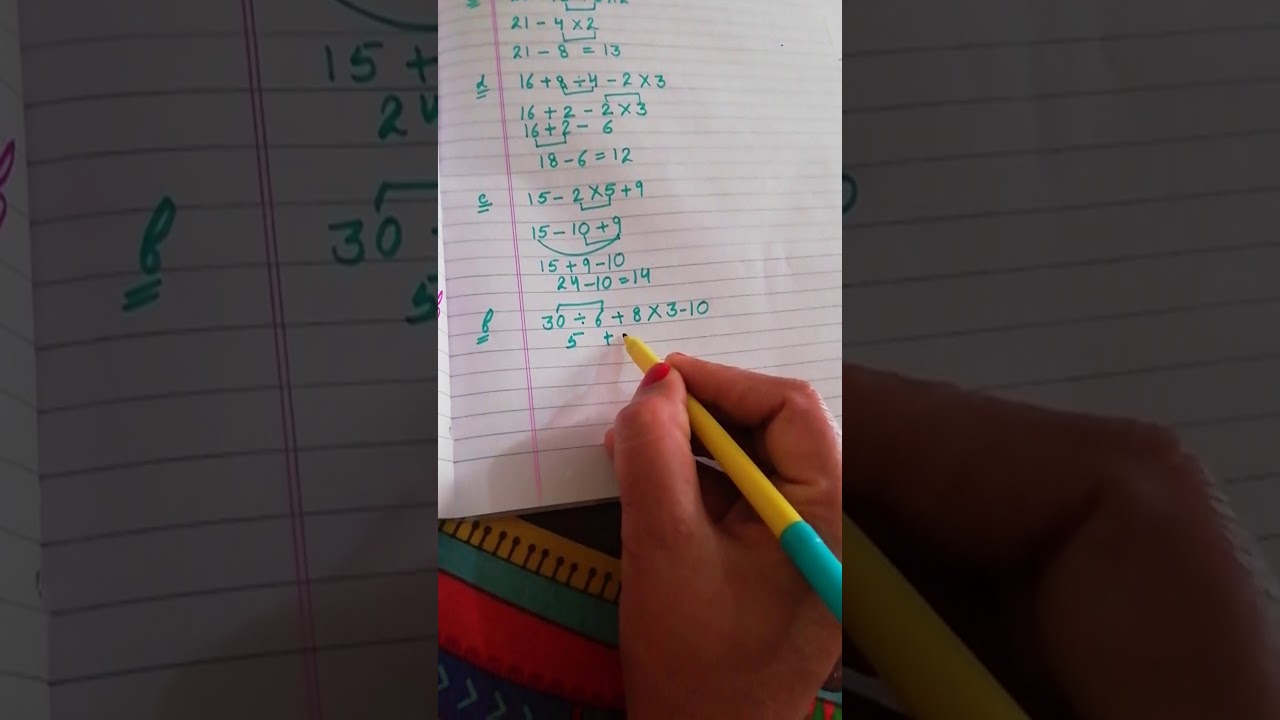 21 - 4 × 2
21 - 8 = 13
d 16 + 8 ÷ 4 - 2 × 3
16 + 2 - 2 × 3
16 + 2 - 6
18 - 6 = 12
e 15 - 2 × 5 + 9
15 - 10 + 9
15 + 9 - 10
24 - 10 = 14
f 30 ÷ 6 + 8 × 3 - 10
5 +